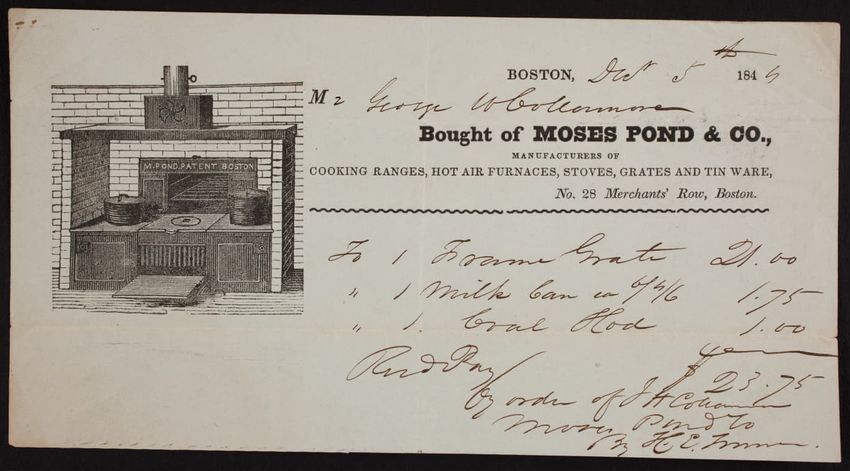 BOSTON, Dec 5th 184
Mr George W Collamore
Bought of MOSES POND & CO.,
MANUFACTURERS OF
COOKING RANGES, HOT AIR FURNACES, STOVES, GRATES AND TIN WARE,
No. 28 Merchants' Row, Boston.
M. POND. PATENT BOSTON
To 1 Frame Grate 21.00
" 1 Milk Can 1.75
" 1. Coal Hod 1.00
$23.75
Recd Pay
by order of J H Collamore
Moses Pond Co
By H. E.